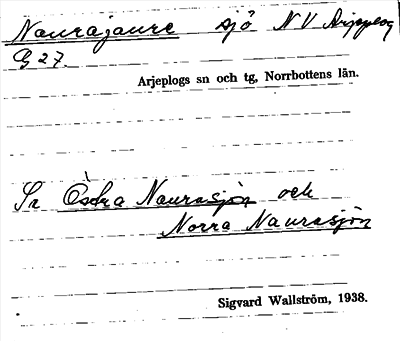 Naurajaure sjö NV Arjeplog
G 27.
Arjeplogs sn och tg, Norrbottens län.
Sr Östra Naurasjön och
Norra Naurasjön
Sigvard Wallström, 1938.